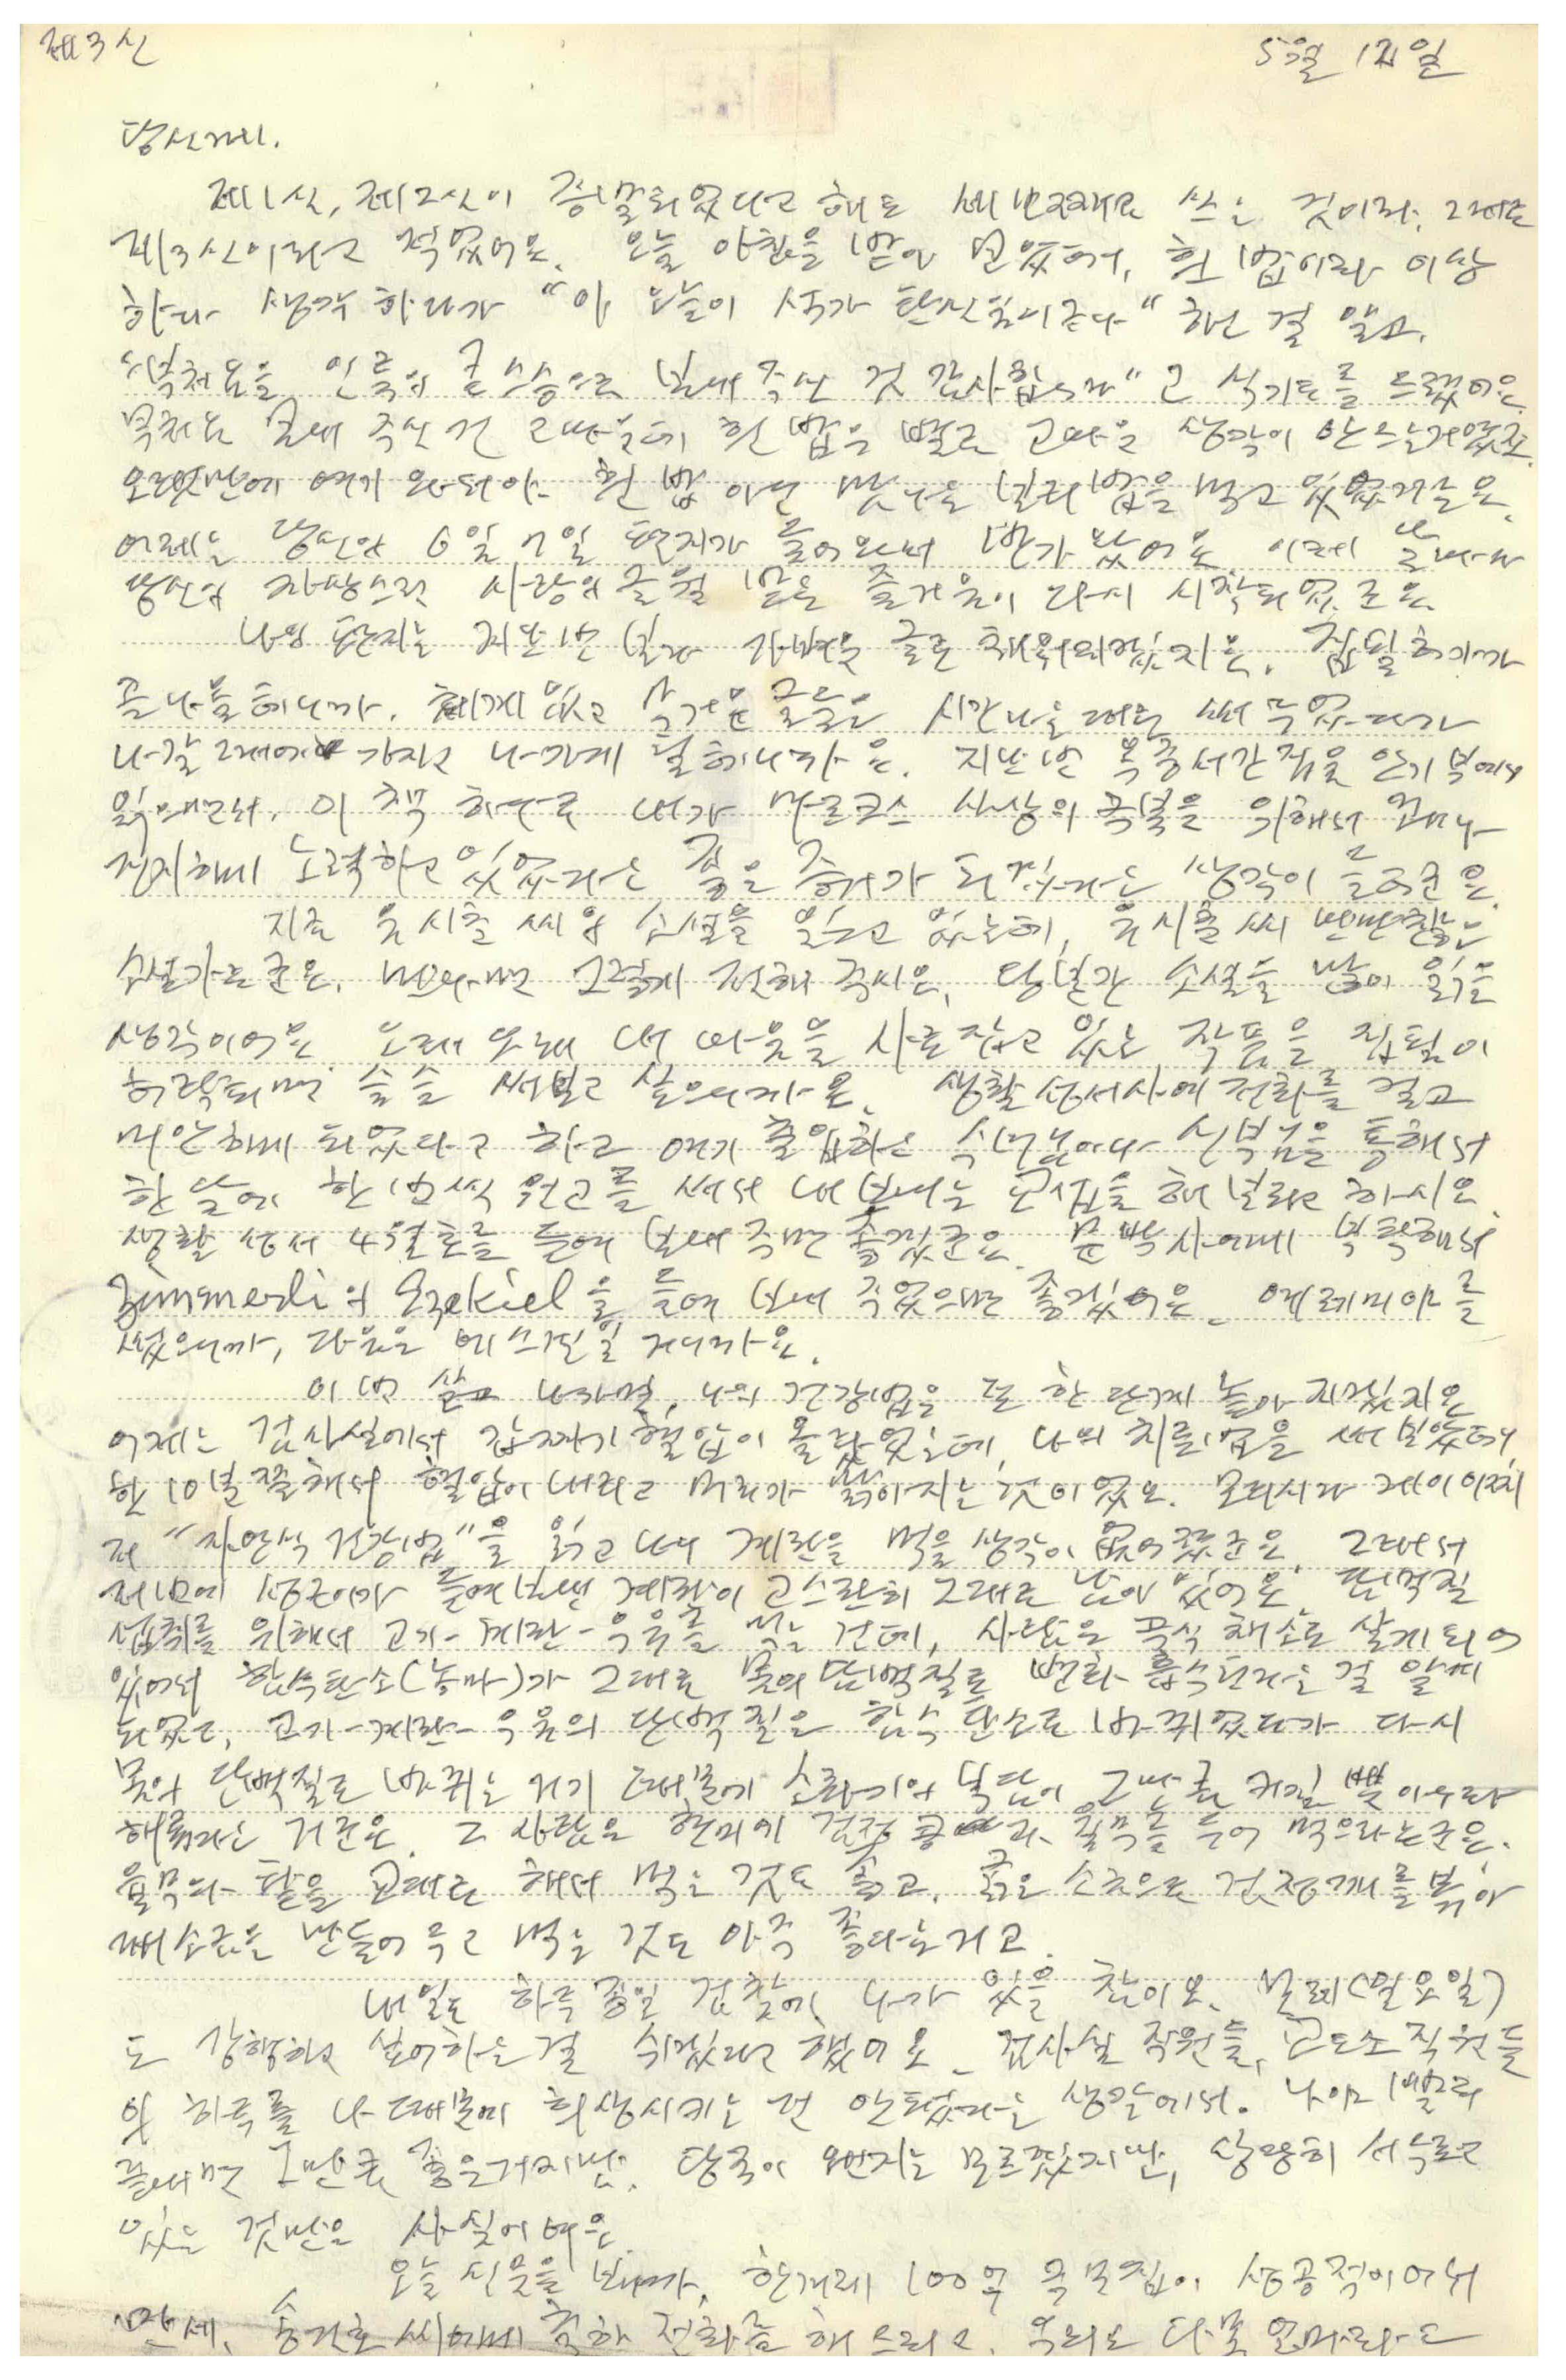 제3신
5월 12일
당신께.
제1신, 제2신이 증발되었다고 해도 세번째로 쓰는 것이라, 그래도
제3신이라고 적었어요. 오늘 아침을 받아 먼 있어, 흰 밥이라 이상
하다 생각하다가 "아 오늘이 석가 탄신일이구나" 하는 걸 알고,
"부처님을 인류의 큰 스승으로 보내 주신 것 감사합니다"고 식기도를 드렸어요.
부처님 보내 주신 건 고마운데 흰 밥은 별로 고마운 생각이 안 드는거였죠.
오랫만에 여기 와서야 흰 밥 아닌 맛나는 보리밥을 먹고 있었거든요.
어제는 당신의 6일 7일 편지가 들어와서 반가왔어요. 이제 날마다
당신의 자상스런 사랑의 글월 받는 즐거움이 다시 시작되었군요.
나의 편지는 지난번 보다 가벼운 글로 채워지겠지요. 집필 허가가
날 테니까. 체계 있고 무거운 글들은 시간나는 대로 써 두었다가
나갈 때에 가지고 나가게 될테니까요. 지난번 옥중서간집을 안기부에서
읽으면서, 이 책 하나로 내가 마르크스 사상의 극복을 위해서 얼마나
진지하게 노력하고 있었다는 좋은 증거가 되겠다는 생각이 들더군요.
지금 유시춘 씨의 소설을 읽고 있는데, 유시춘 씨 만만찮은
소설가로군요. 만나면 그렇게 전해 주시오. 당분간 소설을 많이 읽을
생각이어요. 오래 오래 내 마음을 사로잡고 있는 작품을 집필이
허락되면 슬슬 써보고 싶으니까요. 생활성서사에 전화를 걸고
미안하게 되었다고 하고 여기 출입하는 수녀님이나 신부님을 통해서
한 달에 한 번씩 원고를 써서 내 보내는 교섭을 해 보라고 하시오.
생활 성서 4, 5월호를 들여 보내 주면 좋겠군요. 문박사에게 부탁해서
Zimmerli의 Ezekiel을 들여 보내 주었으면 좋겠어요. 예레미야를
썼으니까, 다음은 에스겔일 거니까요.
이번 살고 나가면, 나의 건강법은 또 한 단계 높아지겠지요.
어제는 검사실에서 갑자기 혈압이 올랐었는데, 나의 치료법을 써 보았더니
한 10분쯤해서 혈압이 내리고 머리가 맑아지는 것이었오. 모리시다 게이이찌
저 "자연식 건강법"을 읽고 나니 계란을 먹을 생각이 없어졌군요. 그래서
저번에 성근이가 들여보낸 계란이 고스란히 그대로 남아 있어요. 단백질
섭취를 위해서 고기-계란-우유를 먹는 건데, 사람은 곡식 채소로 살게 되어
있어서 함수탄소(녹말)가 그대로 몸의 단백질로 변화 흡수된다는 걸 알게
되었고, 고기-계란-우유의 단백질은 함수탄소로 바뀌었다가 다시
몸의 단백질로 바뀌는 거기 때문에 소화기의 부담이 그만큼 커질 뿐 아니라
해롭다는 거군요. 그 사람은 현미에 검정콩과 율무를 두어 먹으라는군요.
율무와 팥을 교대로 해서 먹는 것도 좋고, 굵은 소금으로 검정깨를 볶아
깨소금을 만들어 두고 먹는 것도 아주 좋다는거고.
내일도 하루 종일 검찰에 나가 있을 참이오. 모레(일요일)
도 강행하고 싶어하는 걸 쉬겠다고 했어요. 검사실 직원들, 교도소 직원들
의 하루를 나 때문에 희생시키는 건 안됐다는 생각에서. 나야 빨리
끝내면 그만큼 좋은거지만. 당국이 왠지는 모르겠지만, 상당히 서두르고
있는 것만은 사실이에요.
오늘 신문을 보니까, 한겨레 100억 모집이 성공적이어서
만세, 송건호 씨에게 축하 전화를 해 드리고. 우리도 다문 얼마라도